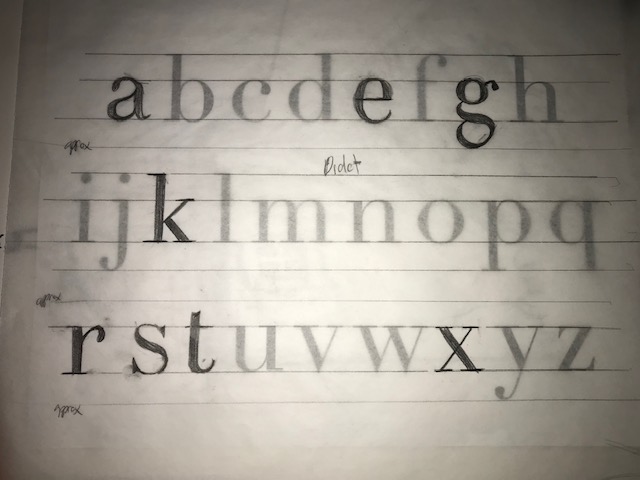 abcdefgh
aprox
Didot
ijklmnopq
aprox
rstuvwxyz
aprox